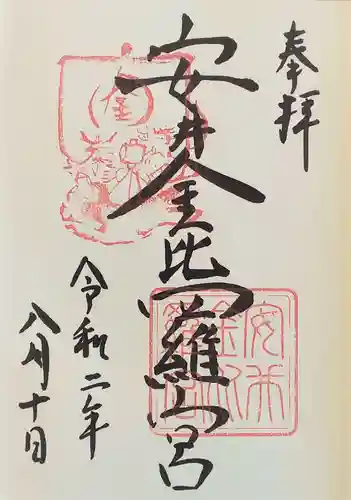 奉拝
安井金比羅宮
令和二年
八月十日